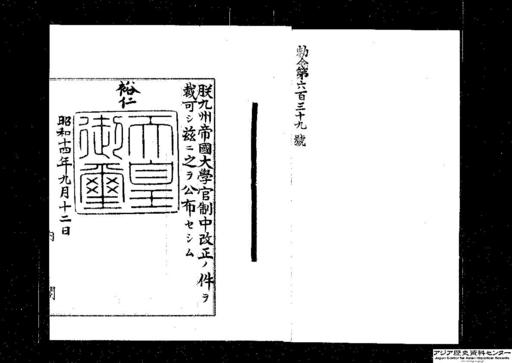 勅令第六百三十九號
朕九州帝國大學官制中改正ノ件ヲ
裁可シ茲ニ之ヲ公布セシム
裕仁
天皇
御璽
昭和十四年九月十二日
内閣
アジア歴史資料センター
Japan Center for Asian Historical Records